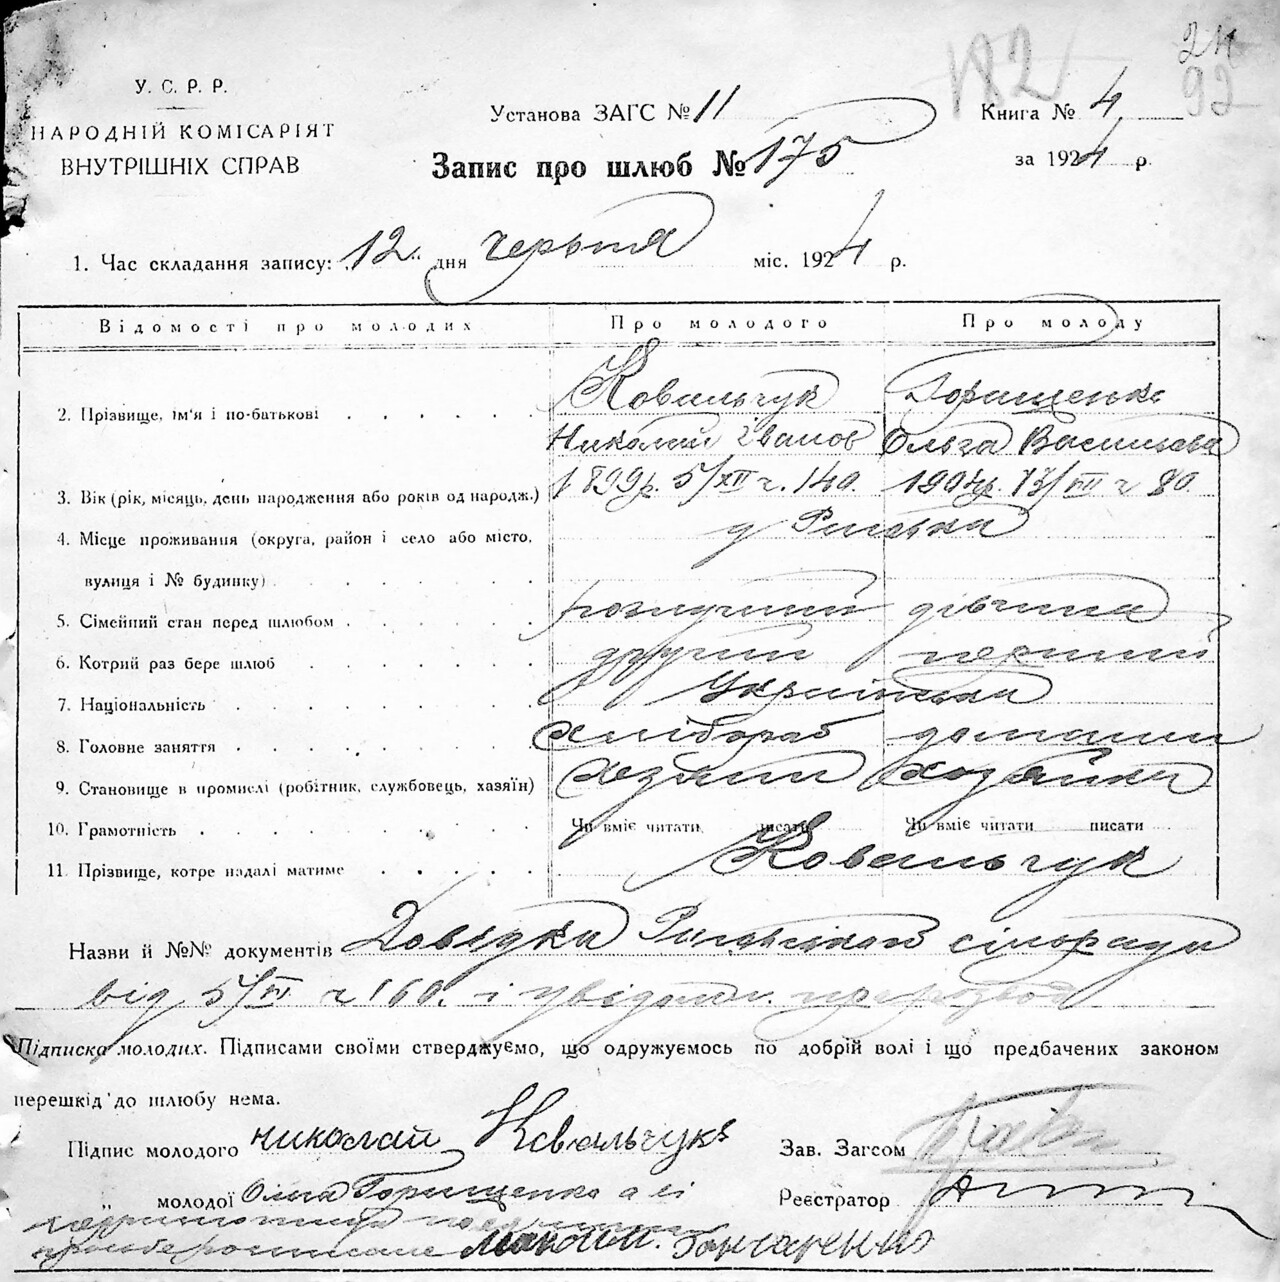 182
24
92
У. С. Р. Р.
НАРОДНІЙ КОМІСАРІЯТ
ВНУТРІШНІХ СПРАВ
Установа ЗАГС № 11
Книга № 4
Запис про шлюб № 175
за 1924 р.
1. Час складання запису: „12" дня червня міс. 1924 р.
Відомості про молодих Про молодого Про молоду
2. Прізвище, ім'я і по-батькові Ковальчук Горищенко
Николай Іванов Ольга Васильева
3. Вік (рік, місяць, день народження або років од народж.) 1899р. 5/XII ч. 140. 1904р. 13/VII ч 80
4. Місце проживання (округа, район і село або місто,
вулиця і № будинку)
5. Сімейний стан перед шлюбом розлучений дівчина
6. Котрий раз бере шлюб другий перший
7. Національність Українська
8. Головне заняття хлібороб домашн
9. Становище в промислі (робітник, службовець, хазяїн) хозяин хозяйка
10. Грамотність Чи вміє читати писати Чи вміє читати писати
11. Прізвище, котре надалі матиме Ковальчук
Назви й №№ документів Довідка сільради
від 5/VI ч 160. і
Підписка молодих. Підписами своїми стверджуємо, що одружуємось по добрій волі і що предбачених законом
перешкід до шлюбу нема.
Підпис молодого Николай Ковальчукъ Зав. Загсом
„ молодої Олига Горищенко а еі Реєстратор
Гончаренко